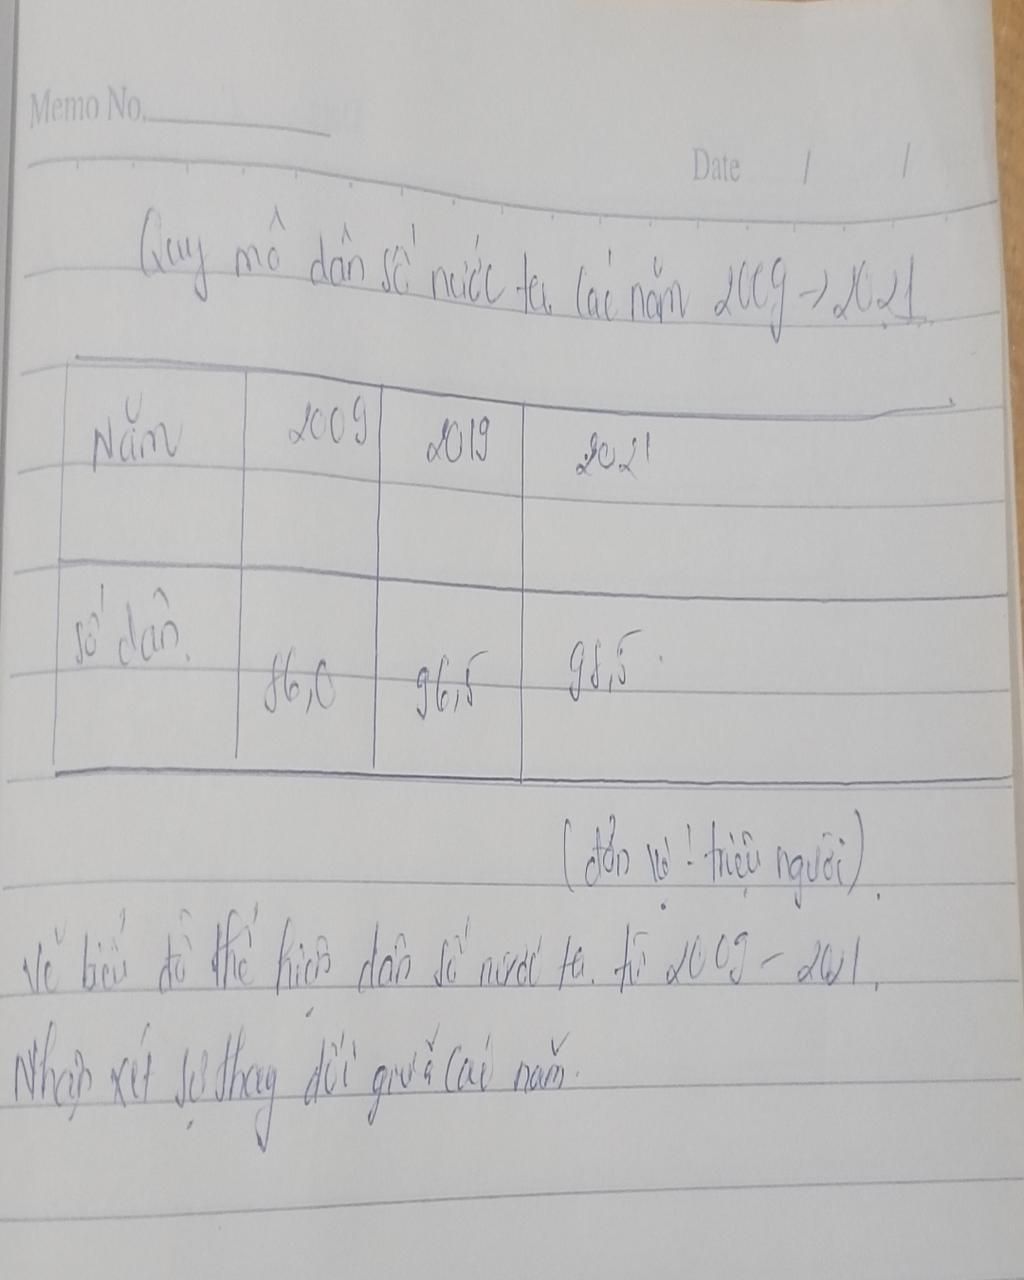 Memo No.
Date / /
Quy mô dân số nước ta các năm 2009 → 2021
Năm 2009 2019 2021
Số dân. 86,0 96,5 98,5
(đơn vị: triệu người).
Vẽ biểu đồ thể hiện dân số nước ta. từ 2009 - 2021.
Nhận xét sự thay đổi giữa các năm.